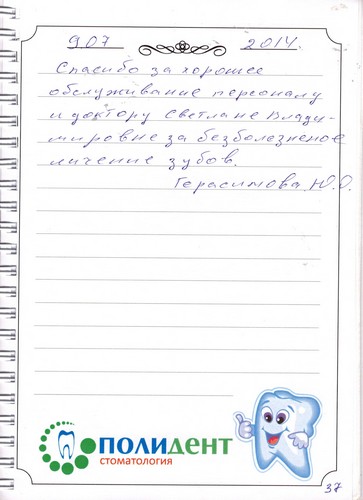 9.07 2014.
Спасибо за хорошее
обслуживание персоналу
и доктору Светлане Влади-
мировне за безболезненое
личение зубов.
Герасимова.Ю.О.
ПОЛИДЕНТ
СТОМАТОЛОГИЯ
37